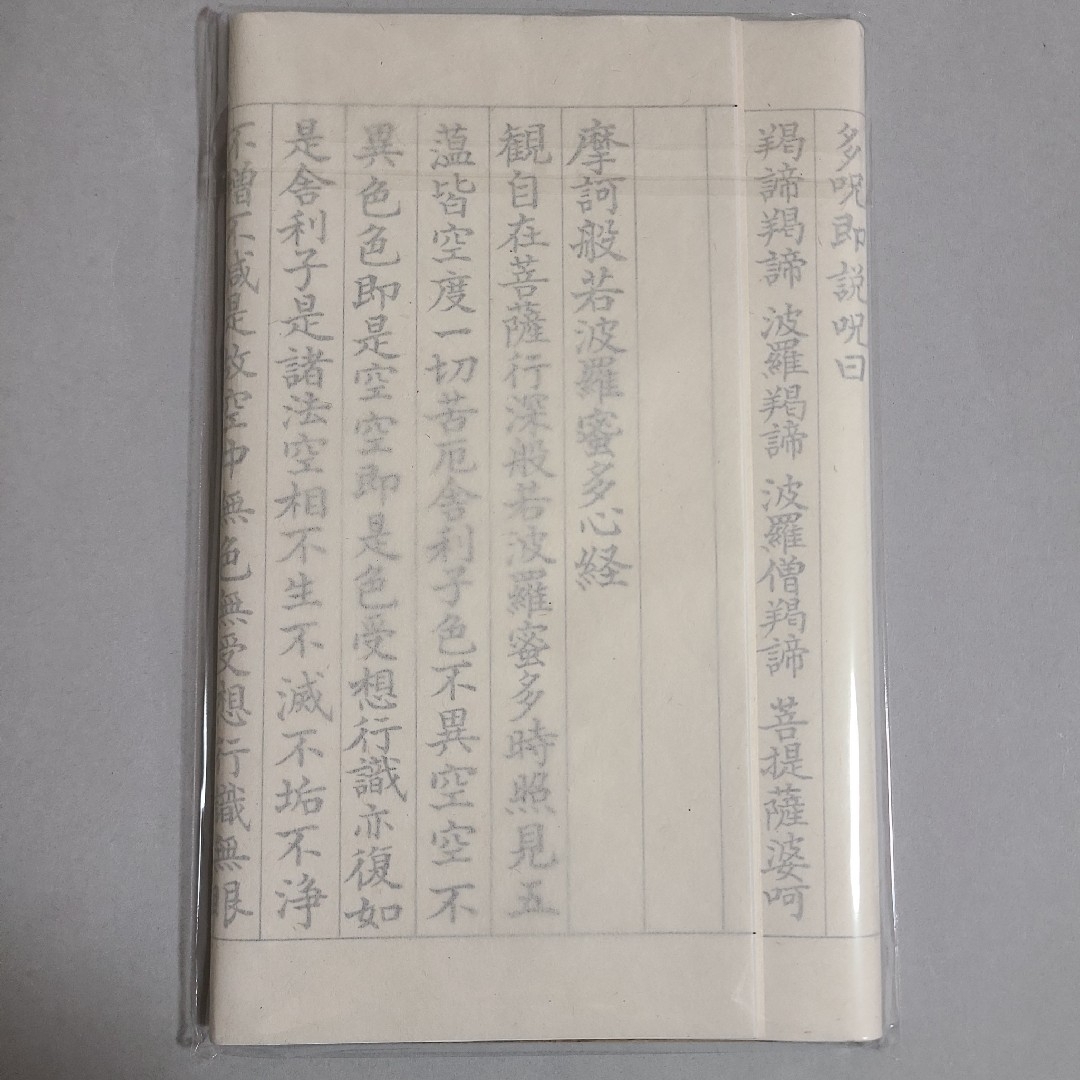 多呪即説呪曰
羯諦羯諦 波羅羯諦 波羅僧羯諦 菩提薩婆呵
摩訶般若波羅蜜多心経
観自在菩薩行深般若波羅蜜多時照見五
蘊皆空度一切苦厄舎利子色不異空空不
異色色即是空空即是色受想行識亦復如
是舎利子是諸法空相不生不滅不垢不浄
不増不減是故空中無色無受想行識無眼